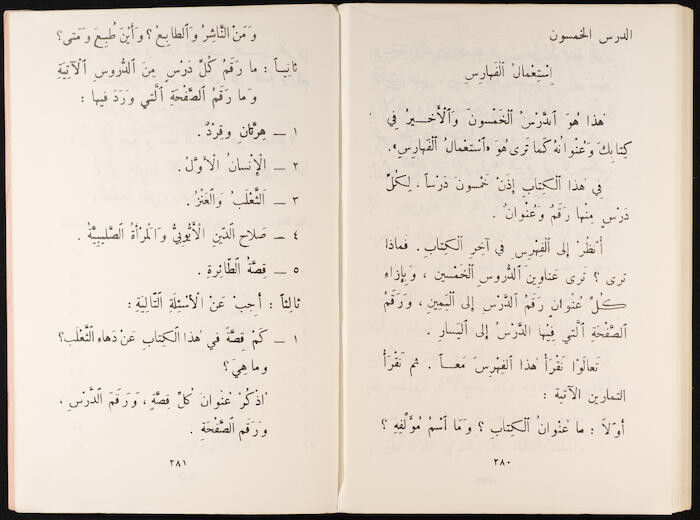 الدرس الخمسون
اِسْتِعْمالُ ٱلْفَهارِسِ
هٰذا هُوَ ٱلدَّرْسُ ٱلْخَمْسونَ وَٱلْأَخيرُ في
كِتابِكَ وَعُنْوانُهُ كَما تَرى هُوَ «ٱسْتِعْمالُ ٱلْفَهارِسِ».
في هٰذا ٱلْكِتابِ إِذَنْ خَمْسونَ دَرْساً . لِكُلِّ
دَرْسٍ مِنْها رَقَمٌ وَعُنْوانٌ .
أُنْظُرْ إِلى ٱلْفِهْرِسِ في آخِرِ ٱلْكِتابِ . فَماذا
تَرى ؟ تَرى عَناوينَ ٱلدُّروسِ ٱلْخَمْسينَ ، وَبِإِزاءِ
كُلِّ عُنْوانٍ رَقَمُ ٱلدَّرْسِ إِلى ٱلْيَمينِ ، وَرَقَمُ
ٱلصَّفْحَةِ ٱلَّتي فيها ٱلدَّرْسُ إِلى ٱلْيَسارِ .
تَعالَوْا نَقْرَأُ هٰذا ٱلْفِهْرِسَ مَعاً . ثم نَقْرَأُ
التمارين الآتية :
أَوَّلاً : ما عُنْوانُ ٱلْكِتابِ ؟ وَما ٱسْمُ مُؤَلِّفِهِ ؟
٢٨٠
وَمَنْ ٱلنَّاشِرُ وَٱلطابِعُ ؟ وَأَيْنَ طُبِعَ وَمَتى ؟
ثانِياً : ما رَقَمُ كُلِّ دَرْسٍ مِنَ ٱلدُّروسِ ٱلْآتِيَةِ
وَما رَقَمُ ٱلصَّفْحَةِ ٱلَّتي وَرَدَ فيها :
١ ــ هِرَّتانِ وَقِرْدٌ .
٢ ــ ٱلْإِنْسانُ ٱلْأَوَّلُ .
٣ ــ ٱلثَّعْلَبُ وَٱلْعَنْزُ .
٤ ــ صَلاح ٱلدّينِ ٱلْأَيّوبِيُّ وَٱلْمَرْأَةُ ٱلصَّليبِيَّةُ .
٥ ــ قِصَّةُ ٱلطَّائِرَةِ .
ثالِثاً : أَجِبْ عَنِ ٱلْأَسْئِلَةِ ٱلتَّالِيَةِ :
١ ــ كَمْ قِصَّةً في هٰذا ٱلْكِتابِ عَنْ دَهاءِ ٱلثَّعْلَبِ ؟
وما هِيَ ؟
اُذْكُرْ عُنْوانَ كُلِّ قِصَّةٍ ، وَرَقَمَ ٱلدَّرْسِ ،
وَرَقَمَ ٱلصَّفْحَةِ .
٢٨١